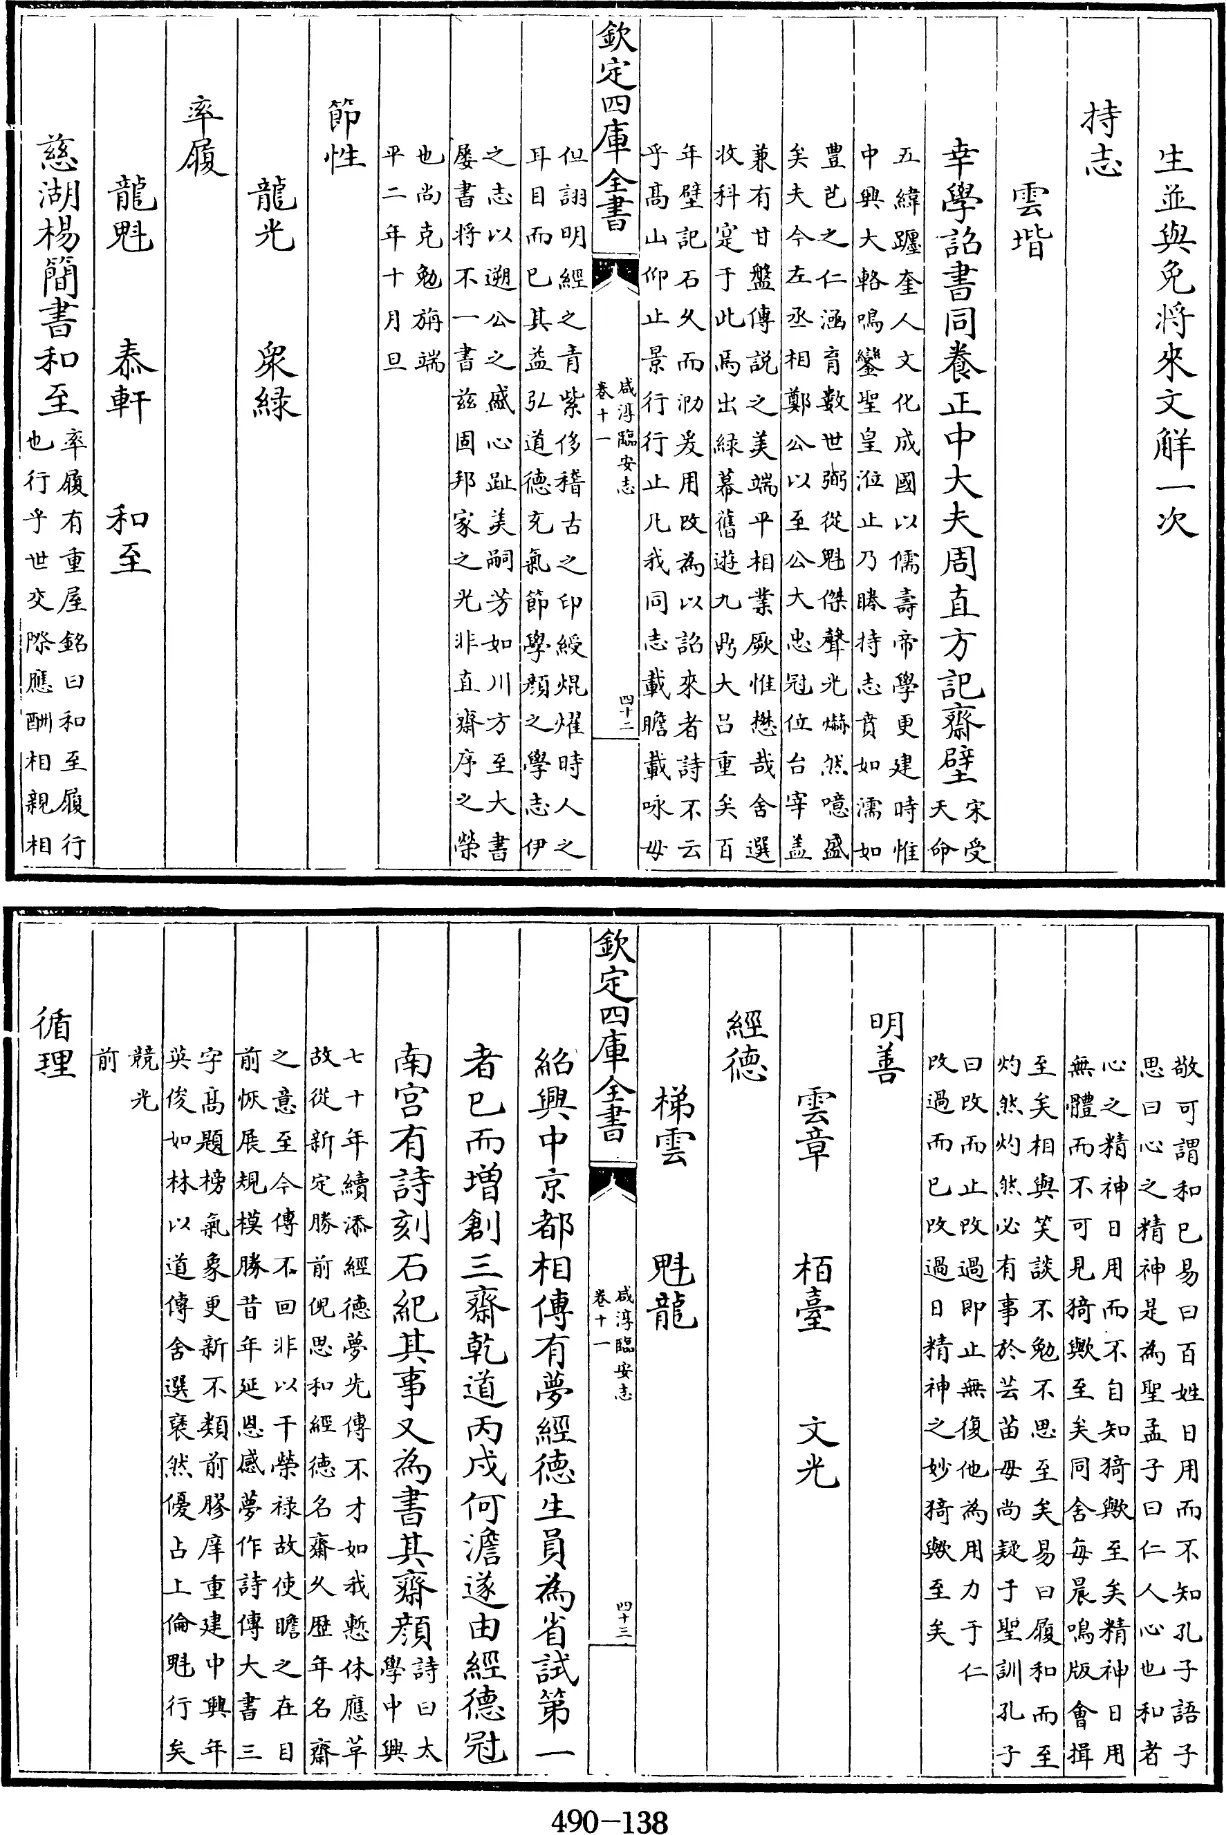 生並與免將來文解一次
持志
雲堦
幸學詔書同養正中大夫周直方記齋壁
宋受
天命
五緯躔奎人文化成國以儒壽帝學更建時惟
中興大輅鳴鑾聖皇涖止乃睠持志賁如濡如
豐芑之仁涵育數世弼從魁傑聲光爀然噫盛
矣夫今左丞相鄭公以至公大忠冠位台宰葢
兼有甘盤傅説之美端平相業厥惟懋哉舍選
收科寔于此焉出緑幕舊遊九鼎大呂重矣百
年壁記石乆而泐爰用改為以詔來者詩不云
乎髙山仰止景行行止凡我同志載瞻載咏毋
欽定四庫全書
咸淳臨安志
卷十一
四十二
但詡明經之青紫侈稽古之印綬焜燿時人之
耳目而已其益弘道德充氣節學顔之學志伊
之志以遡公之盛心趾美嗣芳如川方至大書
屢書將不一書兹固邦家之光非直齋序之榮
也尚克勉旃端
平二年十月旦
節性
龍光 衆緑
率履
龍魁 泰軒 和至
慈湖楊簡書和至
率履有重屋銘曰和至履行
也行乎世交際應酬相親相
敬可謂和已易曰百姓日用而不知孔子語子
思曰心之精神是為聖孟子曰仁人心也和者
心之精神日用而不自知猗歟至矣精神日用
無體而不可見猗歟至矣同舍每晨鳴版會揖
至矣相與笑談不勉不思至矣易曰履和而至
灼然灼然必有事於芸苗毋尚疑于聖訓孔子
曰改而止改過即止無復他為用力于仁
改過而已改過日精神之妙猗歟至矣
明善
雲章 栢臺 文光
經德
梯雲 魁龍
欽定四庫全書
咸淳臨安志
卷十一
四十三
紹興中京都相傳有夢經德生員為省試第一
者已而增創三齋乾道丙戌何澹遂由經德冠
南宫有詩刻石紀其事又為書其齋顔
詩曰太
學中興
七十年續添經德夢先傳不才如我慙休應草
故從新定勝前倪思和經德名齋乆歴年名齋
之意至今傳不回非以干榮禄故使瞻之在目
前恢展規模勝昔年延恩感夢作詩傳大書三
字髙題榜氣象更新不類前膠庠重建中興年
英俊如林以道傳舍選裒然優占上倫魁行矣
競光
前
循理
490-138